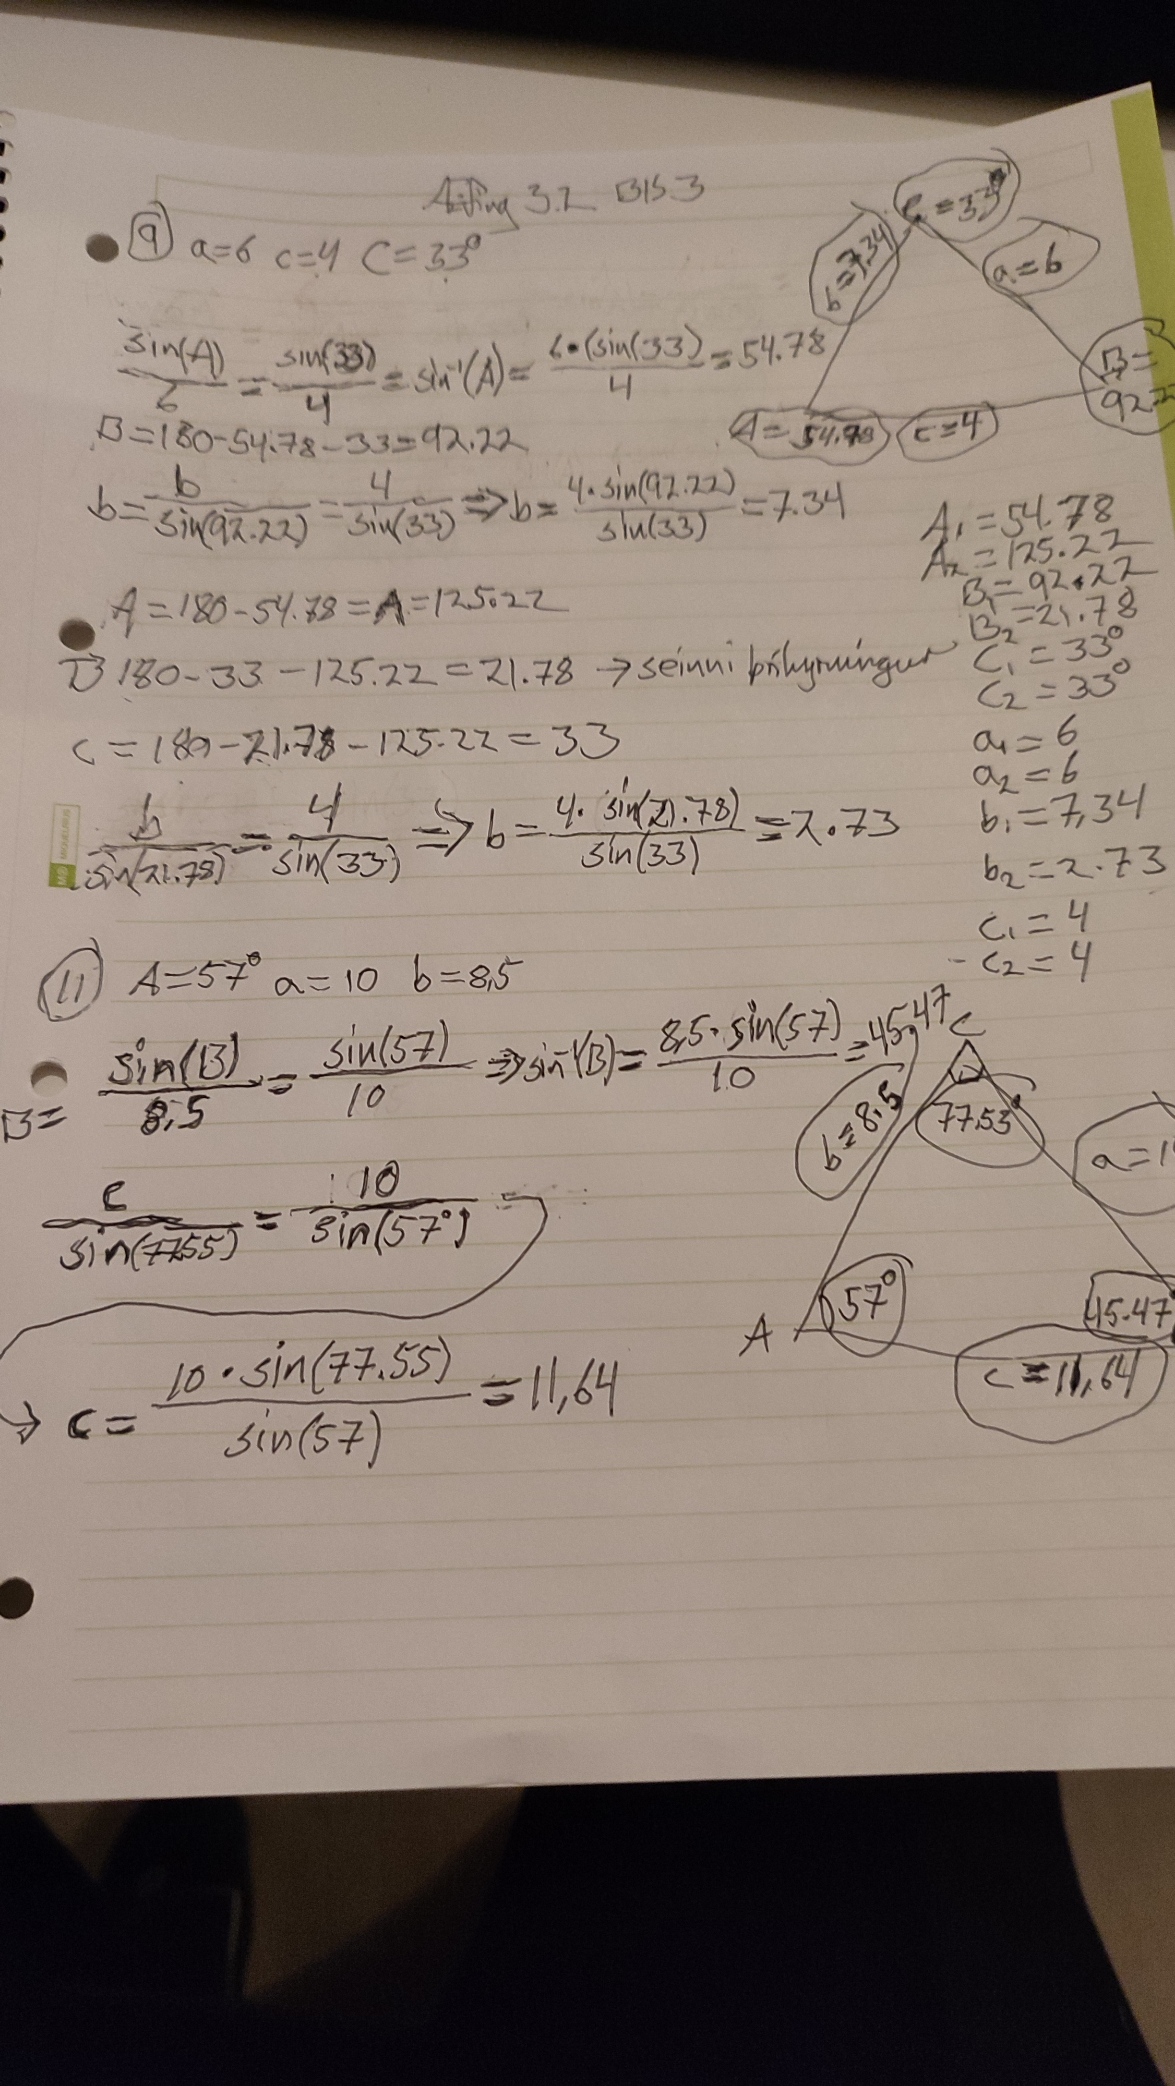 Æfing 3.2 Bls.3
9 a=6 c=4 C=33°
sin(A)/6 = sin(33)/4 = sin⁻¹(A) = 6•(sin(33)/4 = 54.78
B=180-54.78-33=92.22
b = b/sin(92.22) = 4/sin(33) => b = 4•sin(92.22)/sin(33) = 7.34
A=180-54.78=A=125.22
B 180-33-125.22=21.78 → seinni þríhyrningur
C=180-21.78-125.22=33
b/sin(21.78) = 4/sin(33) => b = 4•sin(21.78)/sin(33) = 2.73
C=33°
b=7.34
a=6
B=
92.22
A=54.78
c=4
A₁=54.78
A₂=125.22
B₁=92.22
B₂=21.78
C₁=33°
C₂=33°
a₁=6
a₂=6
b₁=7,34
b₂=2.73
c₁=4
c₂=4
11 A=57° a=10 b=8,5
B= sin(B)/8,5 = sin(57)/10 => sin⁻¹(B) = 8,5•sin(57)/10 = 45.47
c/sin(77.55) = 10/sin(57°) =
→ c = 10•sin(77.55)/sin(57) = 11,64
C
77.53°
b=8,5
a=1
A
57°
45.47°
c=11,64